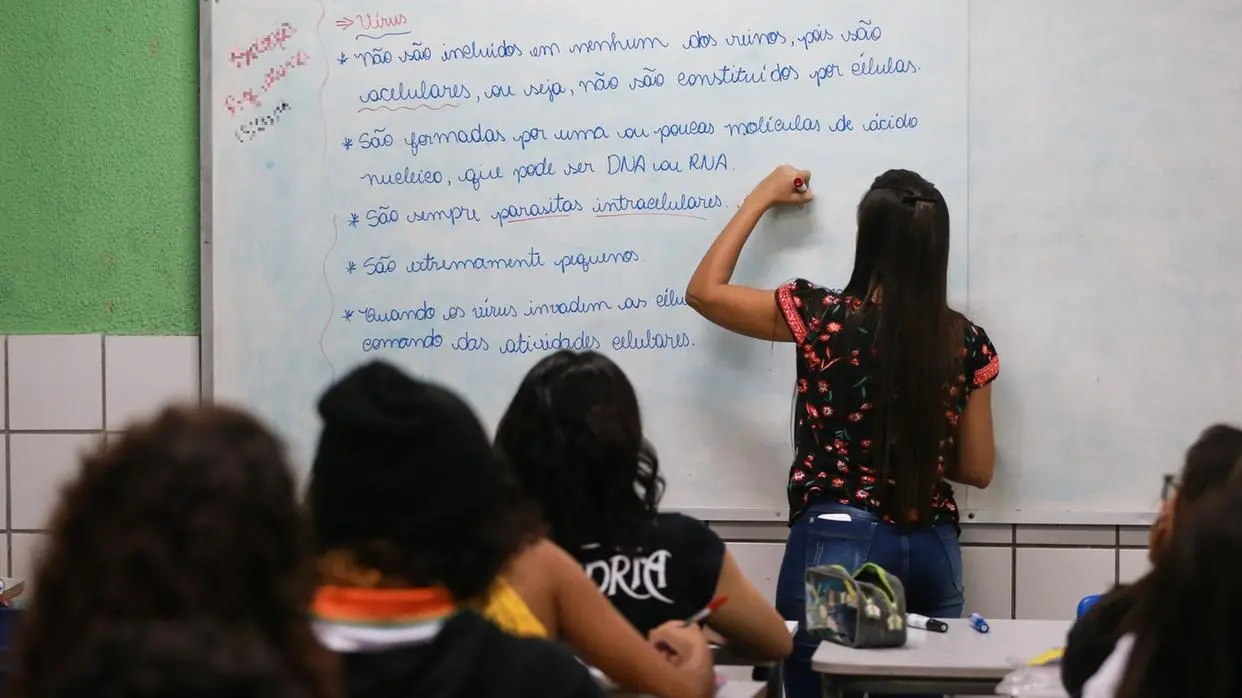 ⇒ Vírus
* não são incluídos em nenhum dos reinos, pois são
acelulares, ou seja, não são constituídos por células.
* São formadas por uma ou poucas moléculas de ácido
nucleico, que pode ser DNA ou RNA.
* São sempre parasitas intracelulares.
* São extremamente pequenos.
* Quando os vírus invadem as célu
comando das atividades celulares.
ORIA